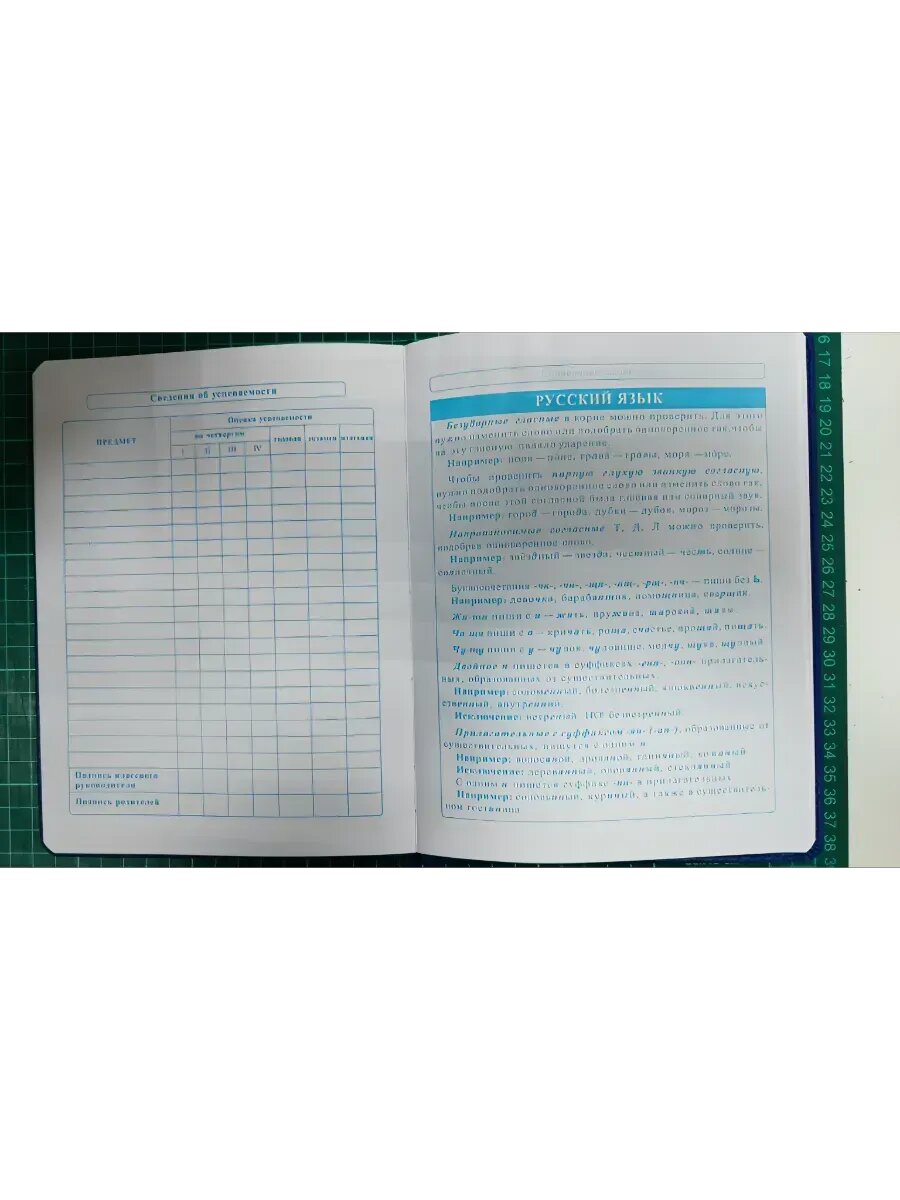 Сведения об успеваемости
ПРЕДМЕТ
Оценка успеваемости
по четвертям
годовая
экзамен
итоговая
I II III IV
Подпись классного
руководителя
Подпись родителей
РУССКИЙ ЯЗЫК
Безударные гласные в корне можно проверить. Для этого
нужно изменить слово или подобрать однокоренное так, чтобы
на эту гласную падало ударение.
Например: поля — поле, трава — травы, моря — море.
Чтобы проверить парную глухую звонкую согласную,
нужно подобрать однокоренное слово или изменить слово так,
чтобы после этой согласной была гласная или сонорный звук.
Например: город — города, дубки — дубок, мороз — морозы.
Непроизносимые согласные Т, Д, Л можно проверить,
подобрав однокоренное слово.
Например: звёздный — звезда, честный — честь, солнце —
солнечный.
Буквосочетания -чк-, -чн-, -щн-, -рщ-, -нч- — пиши без Ь.
Например: девочка, барабанщик, помощница, сварщик.
Жи-ши пиши с и — жить, пружина, широкий, шины.
Ча-ща пиши с а — кричать, роща, счастье, прощай, пищать.
Чу-щу пиши с у — чулок, чудовище, молчу, щука, щуплый
Двойное н пишется в суффиксах -енн-, -онн- прилагатель-
ных, образованных от существительных.
Например: соломенный, болезненный, клюквенный, искус-
ственный, внутренний.
Исключение: ветреный НО! безветренный.
Прилагательные с суффиксом -ян- (-ан-), образованные от
существительных, пишутся с одним н
Например: полосяной, глиняный, кожаный
Исключение: деревянный, оловянный, стеклянный
С одним н пишется суффикс -ин- в прилагательных
Например: соловьиный, куриный, а также в существитель-
ном гостиница
6 17 18 19 20 21 22 23 24 25 26 27 28 29 30 31 32 33 34 35 36 37 38